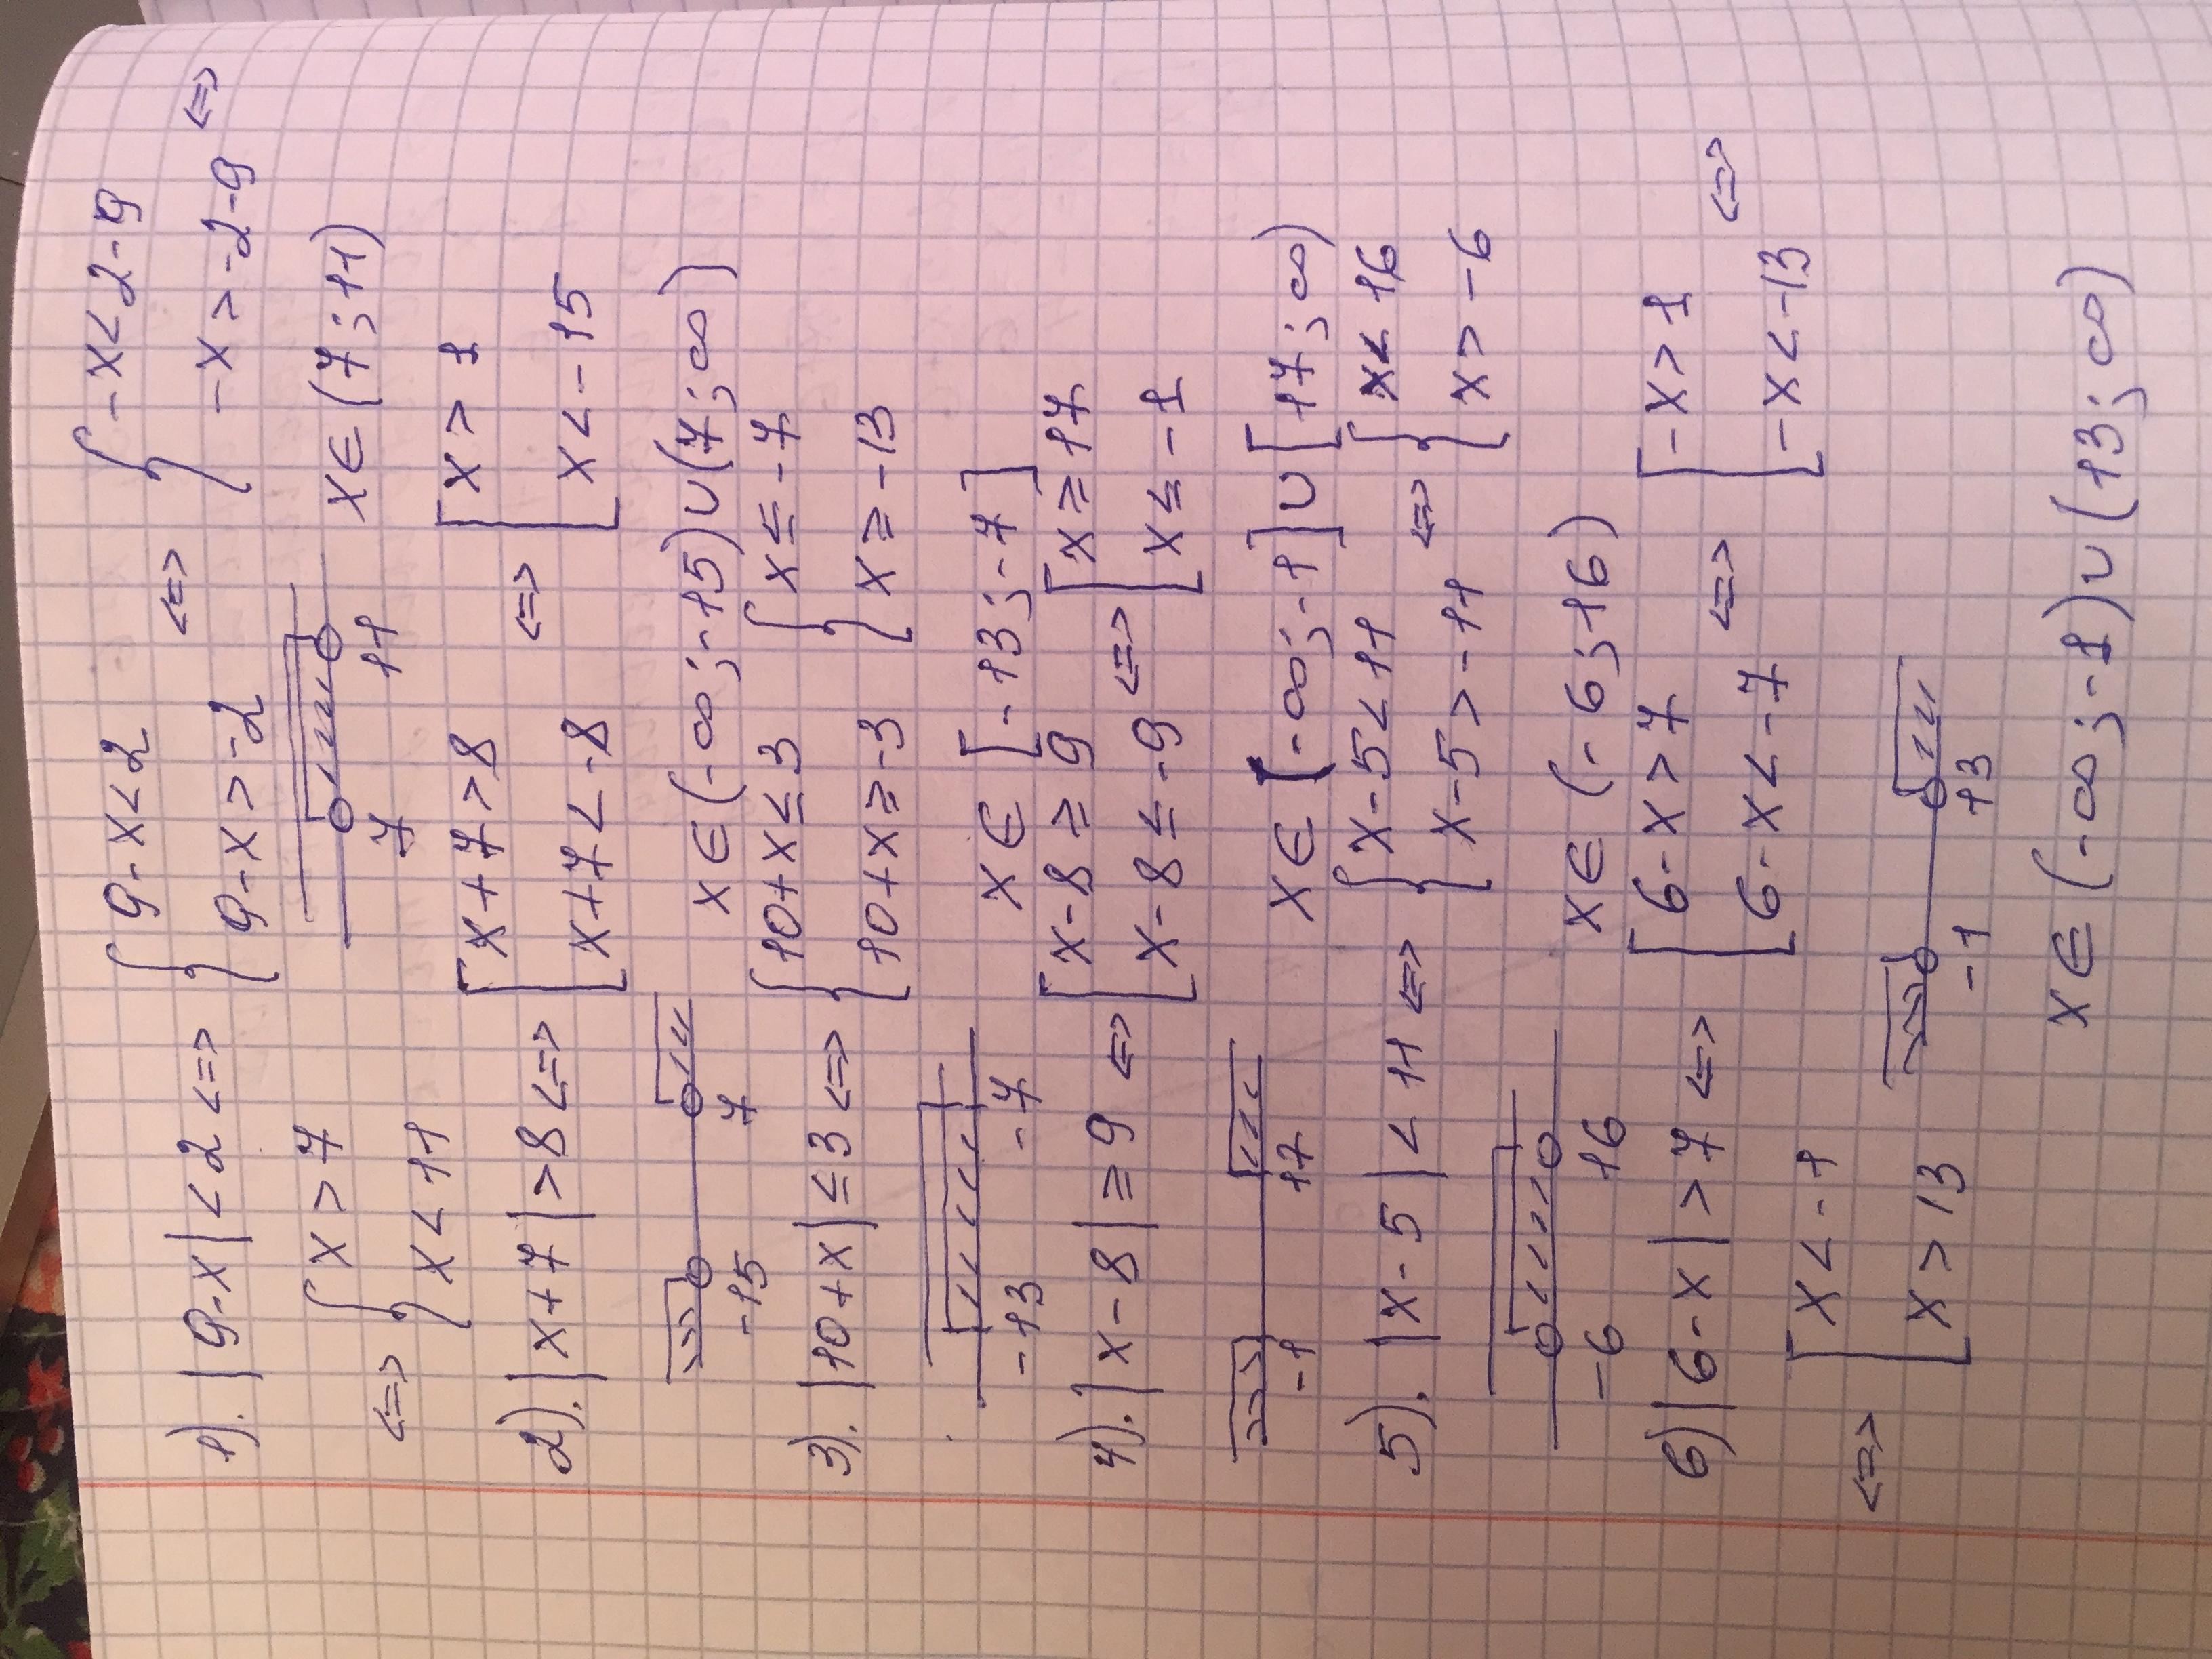 1). |9-x|<2 <=> { 9-x<2 <=> { -x<2-9
9-x>-2 -x>-2-9 <=>
<=> { x>7 7 11 x∈(7;11)
x<11
2). |x+7|>8 <=> [ x+7>8 <=> [ x>1
x+7<-8 x<-15
-15 7 x∈(-∞;-15)∪(7;∞)
3). |10+x|≤3 <=> { 10+x≤3 { x≤-7
10+x≥-3 x≥-13
-13 -7 x∈[-13;-7]
4). |x-8|≥9 <=> [ x-8≥9 <=> [ x≥17
x-8≤-9 x≤-1
-1 17 x∈(-∞;-1]∪[17;∞)
5). |x-5|<11 <=> { x-5<11 <=> { x<16
x-5>-11 x>-6
-6 16 x∈(-6;16)
6) |6-x|>7 <=> [ 6-x>7 <=> [ -x>1 <=>
6-x<-7 -x<-13
<=> [ x<-1
x>13 -1 13
x∈(-∞;-1)∪(13;∞)